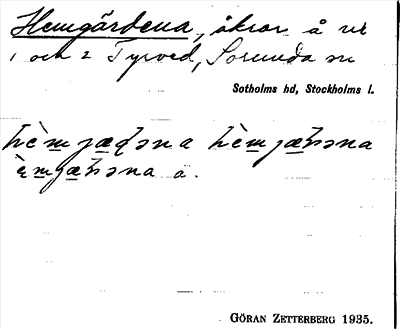 Hemgärdena, åkrar å nr
1 och 2 Tyrved, Sorunda sn
Sotholms hd, Stockholms l.
hèm jæḍəna hèmjæḥəna
èmjæḥəna ä.
GÖRAN ZETTERBERG 1935.